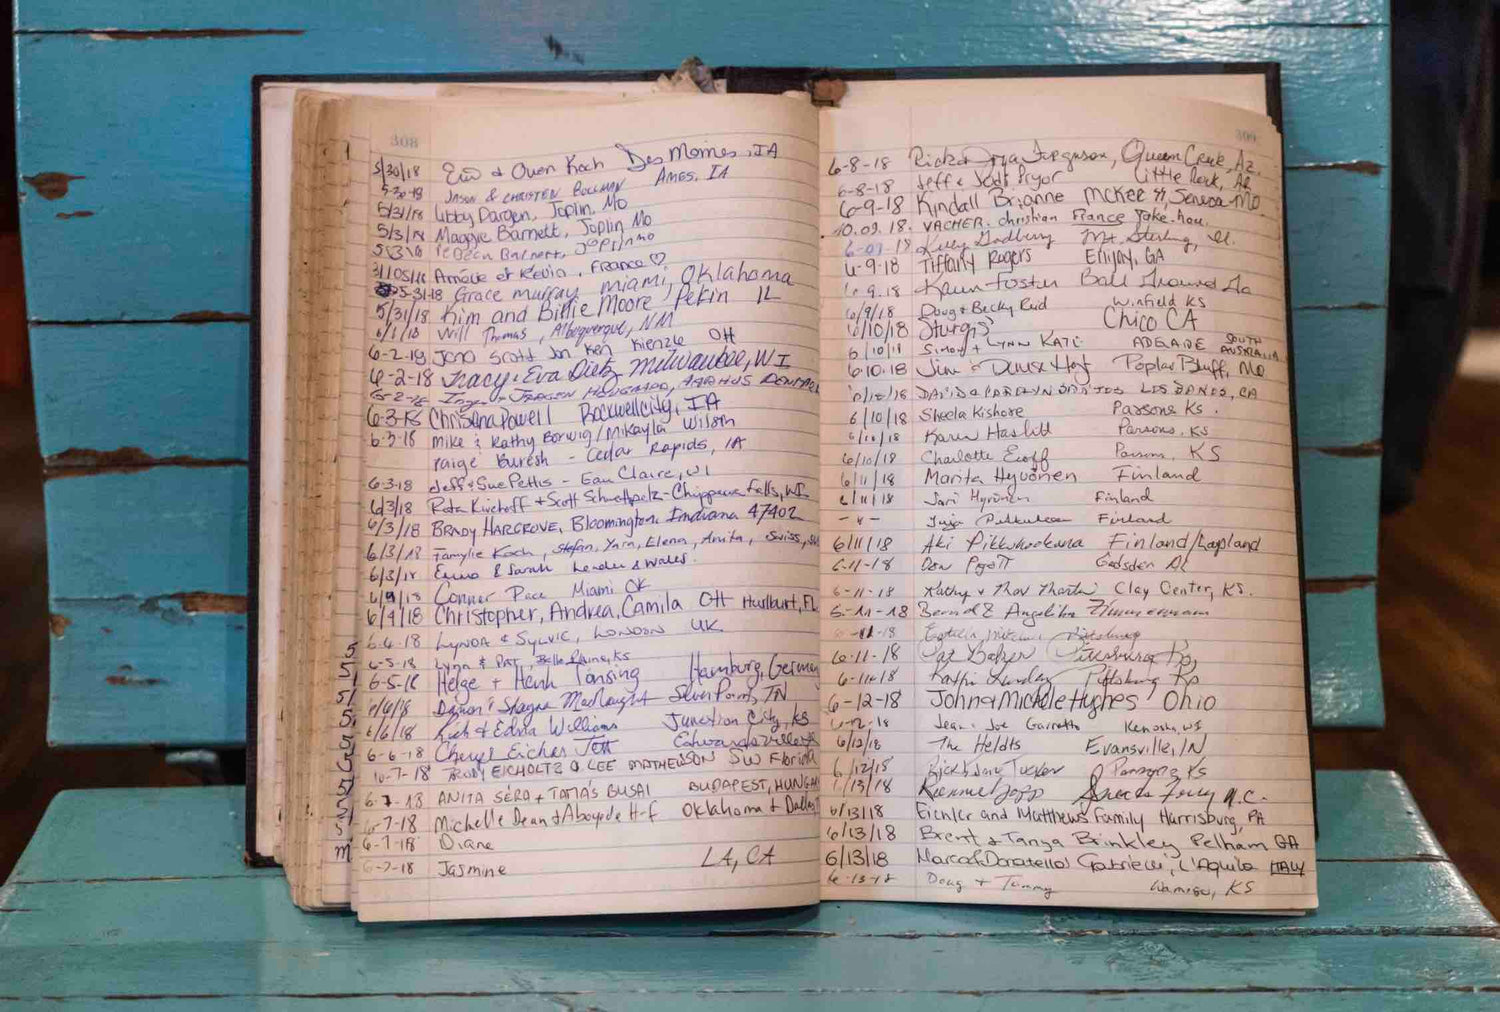 308
5/30/18 & Owen Koch Des Moines, IA
5-30-18 JASON & CHRISTEN BOLLMAN AMES, IA
5/31/18 Libby Dargen, Joplin, Mo
5/31/18 Maggie Barnett, Joplin Mo
Barnett, Joplin mo
31/05/18 Amélie et Kévin, FRANCE ♡
5-31-18 Grace murray miami, Oklahoma
5/31/18 Kim and Billie Moore Pekin IL
6/1/18 Will Thomas, Albuquerque, NM
6-2-18 Jono Scott Jon Ken Kienzle OH
6-2-18 Tracy & Eva Dietz Milwaukee, WI
6-2-18 AARHUS DENMARK
6-3-18 Christena Powell Rockwell city, IA
6-3-18 Mike & Kathy Borwig/Mikayla Wilson
Paige Buresh - Cedar Rapids, IA
6-3-18 Jeff & Sue Pettis - Eau Claire, WI
6/3/18 Rota Kirchoff & Scott - Chippewa Falls, WI
6/3/18 BRADY HARGROVE, Bloomington Indiana 47402
6/3/18 Famylie Koch, Stefan, Yara, Elena, Anita, Swiss,
6/3/18 & Sarah Wales.
Conner Pace Miami OK
Christopher, Andrea, Camila Ott Hurlburt, FL
6-4-18 LYNDA & SYLVIE, LONDON UK
6-5-18 Lynn & Pat, Belle Plaine, KS
6-5-18 Helge + Heinke Tansing Hamburg, Germany
6/6/18 & Shayne Silver Point, TN
6/6/18 Rich & Edna Williams Junction City, KS
6-6-18 Cheryl Eicher Edwardsville
6-7-18 TRUDY EICHOLTZ & LEE MATHEWSON SW Florida
6-7-18 ANITA SÉRA + TAMÁS BUSAI BUDAPEST, HUNGA
6-7-18 Michelle Dean & H-f Oklahoma & Dallas
6-7-18 Diane
6-7-18 Jasmine LA, CA
309
6-8-18 Rick & Ferguson, Queen Creek, Az.
6-8-18 Jeff & Jodi Pryor Little Rock, AR
6-9-18 Kindall Brianne McKee, Seneca Mo.
10.09.18. VACHER. christian France
Kelly Godberry Mt. Sterling, Il.
6-9-18 Tiffany Rogers Ellijay, GA
6.9.18 Karen Foster Ball Ground Ga
6/9/18 Doug & Becky Reid Winfield KS
6/10/18 Sturgis Chico CA
6/10/18 Simon + LYNN KATE ADELAIDE SOUTH AUSTRALIA
6-10-18 Jim & Poplar Bluff, Mo
DAVID & CAROLYN LOS BANOS, CA
6/10/18 Sheela Kishore Parsons KS.
6/10/18 Karen Parsons, KS
6/10/18 Charlotte Parsons, KS
6/11/18 Marita Hyvönen Finland
6/11/18 Jari Hyvönen Finland
- " - Finland
6/11/18 Aki Finland/Lapland
6-11-18 Don Gadsden AL
6-11-18 Kathy + Clay Center, KS.
6-11-18 Bernd & Angelika Zimmermann
-11-18
6-11-18 Pat
6-11-18 Kathi Pittsburg Ks
6-12-18 John & Michele Hughes Ohio
6-12-18 Jean & Joe Kenosha, WI
6/12/18 The Heldts Evansville, IN
6/12/18 Rick & Tucker Parsons Ks
/13/18 N.C.
6/13/18 Eichler and Matthews Family Harrisburg, PA
6/13/18 Brent & Tanya Brinkley Pelham GA
6/13/18 Gabriele, L'Aquila ITALY
6-13-18 Doug + Tammy Wamego, KS